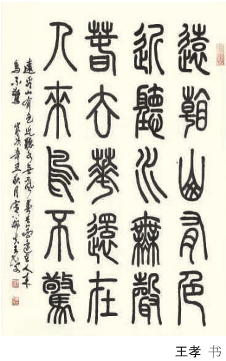 遠看山有色
近聽水無聲
春去華還在
人來鳥不驚
遠看山有色近聽水無聲春去花還在人來
鳥不驚
王孝 书